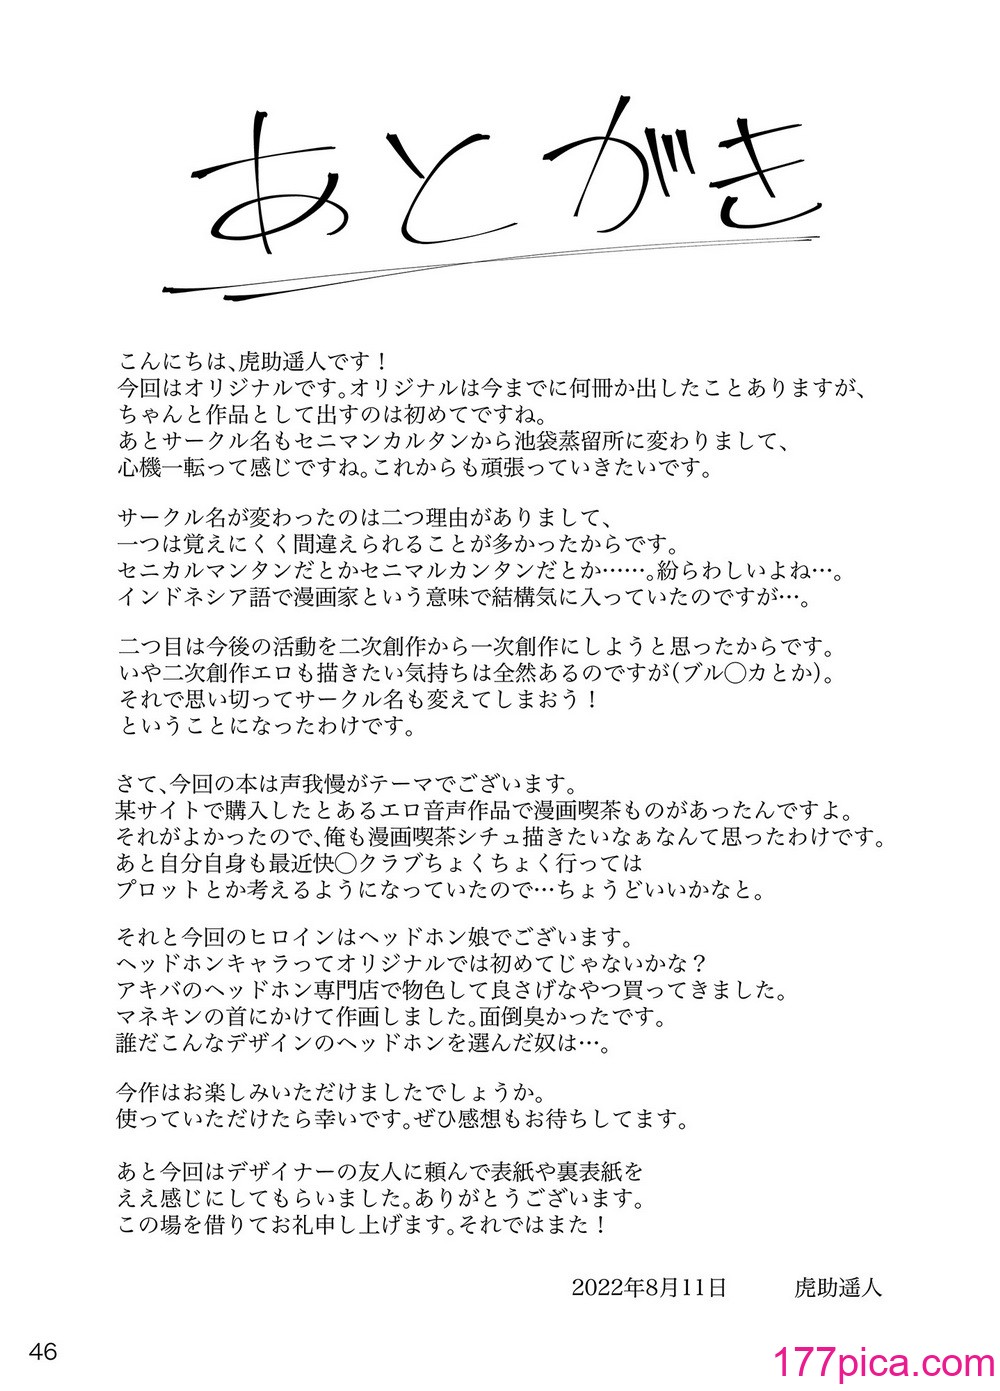 あとがき
こんにちは、虎助遥人です！
今回はオリジナルです。オリジナルは今までに何冊か出したことありますが、
ちゃんと作品として出すのは初めてですね。
あとサークル名もセニマンカルタンから池袋蒸留所に変わりまして、
心機一転って感じですね。これからも頑張っていきたいです。
サークル名が変わったのは二つ理由がありまして、
一つは覚えにくく間違えられることが多かったからです。
セニカルマンタンだとかセニマルカンタンだとか……。紛らわしいよね…。
インドネシア語で漫画家という意味で結構気に入っていたのですが…。
二つ目は今後の活動を二次創作から一次創作にしようと思ったからです。
いや二次創作エロも描きたい気持ちは全然あるのですが(ブル◯カとか)。
それで思い切ってサークル名も変えてしまおう！
ということになったわけです。
さて、今回の本は声我慢がテーマでございます。
某サイトで購入したとあるエロ音声作品で漫画喫茶ものがあったんですよ。
それがよかったので、俺も漫画喫茶シチュ描きたいなぁなんて思ったわけです。
あと自分自身も最近快◯クラブちょくちょく行っては
プロットとか考えるようになっていたので…ちょうどいいかなと。
それと今回のヒロインはヘッドホン娘でございます。
ヘッドホンキャラってオリジナルでは初めてじゃないかな？
アキバのヘッドホン専門店で物色して良さげなやつ買ってきました。
マネキンの首にかけて作画しました。面倒臭かったです。
誰だこんなデザインのヘッドホンを選んだ奴は…。
今作はお楽しみいただけましたでしょうか。
使っていただけたら幸いです。ぜひ感想もお待ちしてます。
あと今回はデザイナーの友人に頼んで表紙や裏表紙を
ええ感じにしてもらいました。ありがとうございます。
この場を借りてお礼申し上げます。それではまた！
2022年8月11日 虎助遥人
46
177pica.com